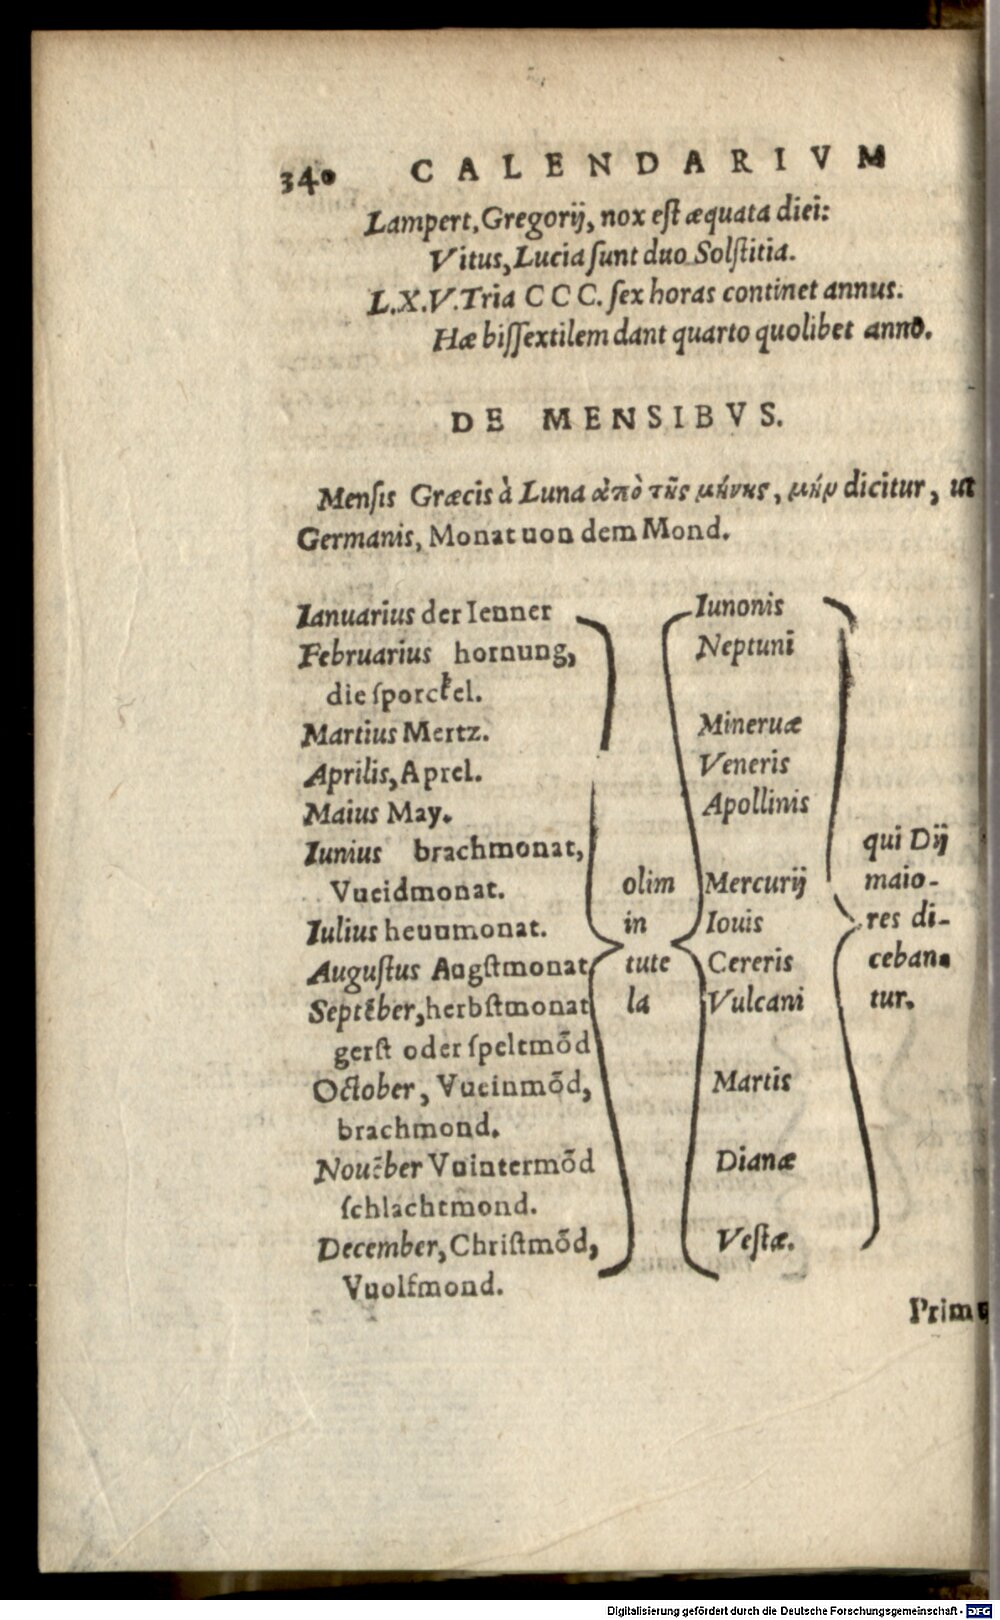 340 CALENDARIVM
Lampert, Gregorij, nox eſt æquata diei:
Vitus, Lucia ſunt duo Solſtitia.
L.X.V. Tria CCC. ſex horas continet annus.
Hæ biſſextilem dant quarto quolibet anno.
DE MENSIBVS.
Menſis Græcis à Luna ἀπὸ τῆς μήνης, μήν dicitur, ut
Germanis, Monat uon dem Mond.
Ianuarius der Ienner
Februarius hornung,
die ſporckel.
Martius Mertz.
Aprilis, Aprel.
Maius May.
Iunius brachmonat,
Vueidmonat.
Iulius heuumonat.
Auguſtus Augſtmonat
Septẽber, herbſtmonat
gerſt oder ſpeltmõd
October, Vueinmõd,
brachmond.
Nouẽber Vuintermõd
ſchlachtmond.
December, Chriſtmõd,
Vuolfmond.
olim
in
tute
la
Iunonis
Neptuni
Mineruæ
Veneris
Apollinis
Mercurij
Iouis
Cereris
Vulcani
Martis
Dianæ
Veſtæ.
qui Dij
maio-
res di-
ceban-
tur.
Primq
Digitalisierung gefördert durch die Deutsche Forschungsgemeinschaft - DFG